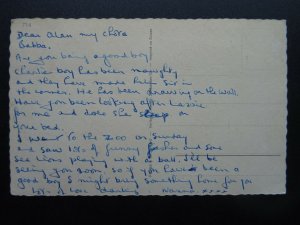 Dear Alan my chota
Babba,
Are you being a good boy?
Charlie boy has been naughty
and they have made him sit in
the corner. He has been drawing on the wall
Have you been looking after Lassie
for me and does she sleep on
your bed.
I went to the zoo on Sunday
and saw lots of funny fishes and some
sea lions playing with a ball. I'll be
seeing you soon. so if you have been a
good boy I might bring something home for you
lots of love darling Nanna. xxxx